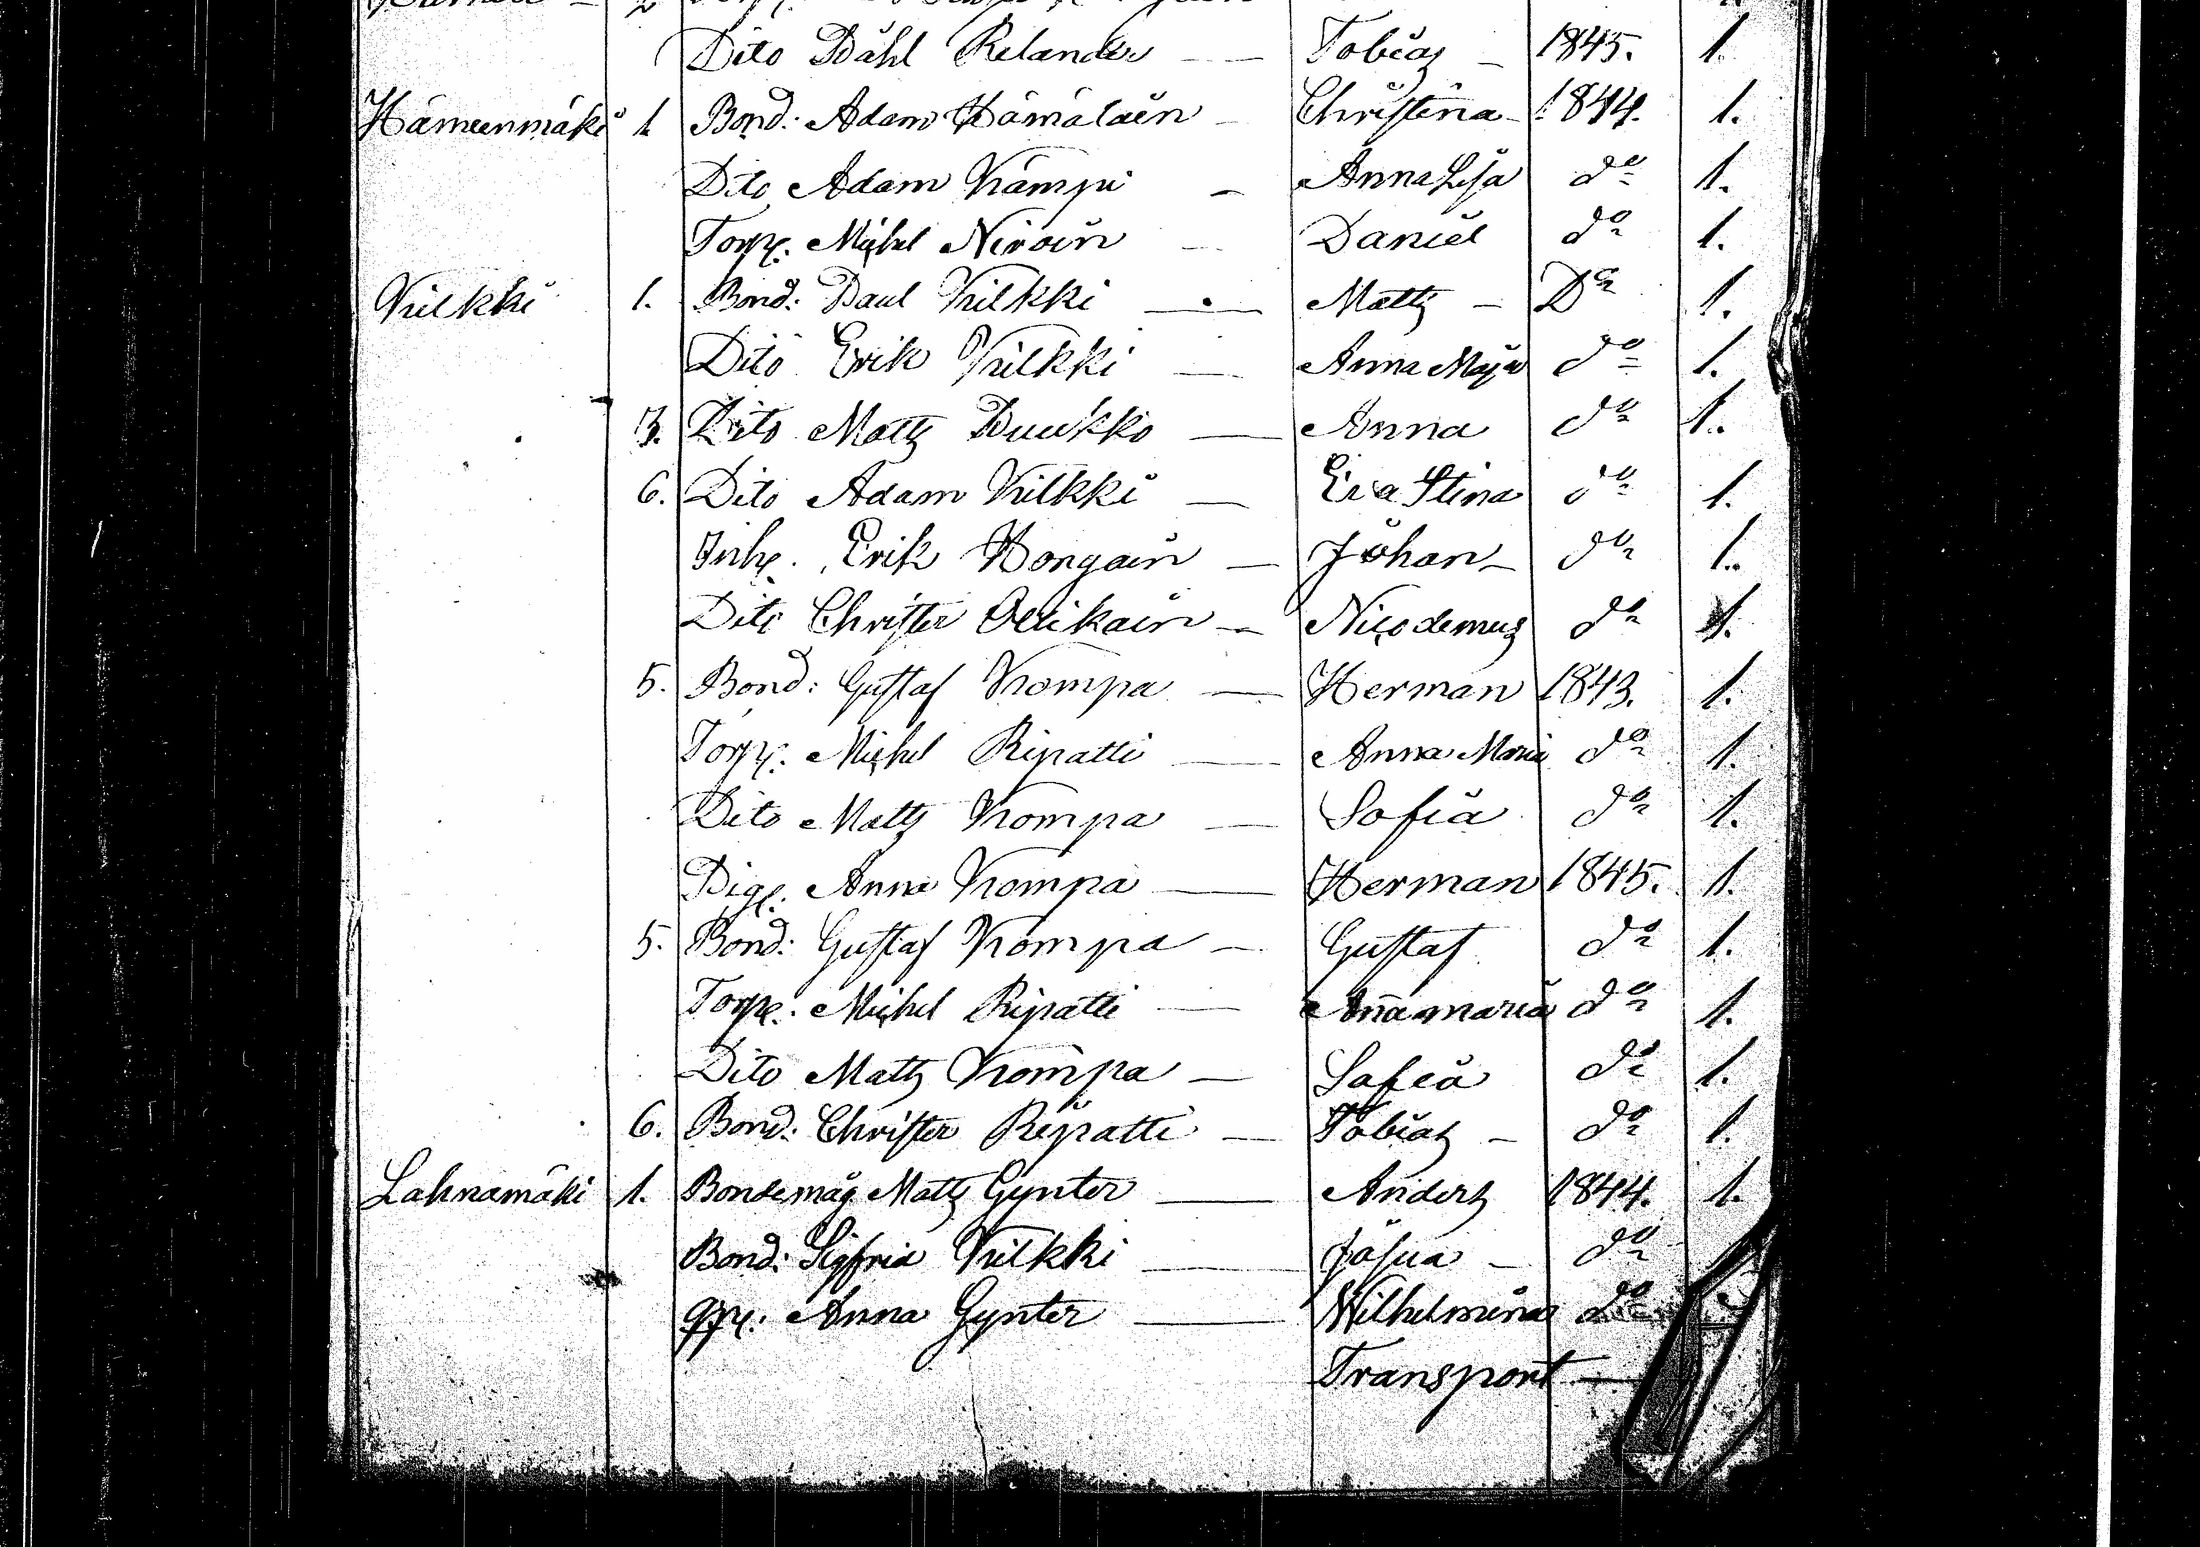 Dito Påhl Relander — Tobias — 1845. 1.
Hämeenmäki 1. Bond: Adam Hämäläin — Christina — 1844. 1.
Dito Adam Kämpi — Anna Lisa do 1.
Torp. Michel Niroin — Daniel do 1.
Vilkki 1. Bond: Paul Vilkki — Matts — Do 1.
Dito Erik Vilkki — Anna Maja do 1.
3. Dito Matts Puukko — Anna do 1.
6. Dito Adam Vilkki — Eva Stina do 1.
Inh. Erik Hongain — Johan — do 1.
Dito Christer Ollikain — Nicodemus do 1.
5. Bond: Gustaf Kompa — Herman 1843. 1.
Torp: Michel Ripatti — Anna Maria do 1.
Dito Matts Kompa — Sofia do 1.
Pig: Anna Kompa — Herman 1845. 1.
5. Bond: Gustaf Kompa — Gustaf do 1.
Torp: Michel Ripatti — Anna maria do 1.
Dito Matts Kompa — Sofia do 1.
6. Bond: Christer Ripatti — Tobias — do 1.
Lahnamäki 1. Bondemåg Matts Gynter — Anders 1844. 1.
Bond: Sigfrid Vilkki — Josua — do
Anna Gynter — Wilhelmina do
Transport —